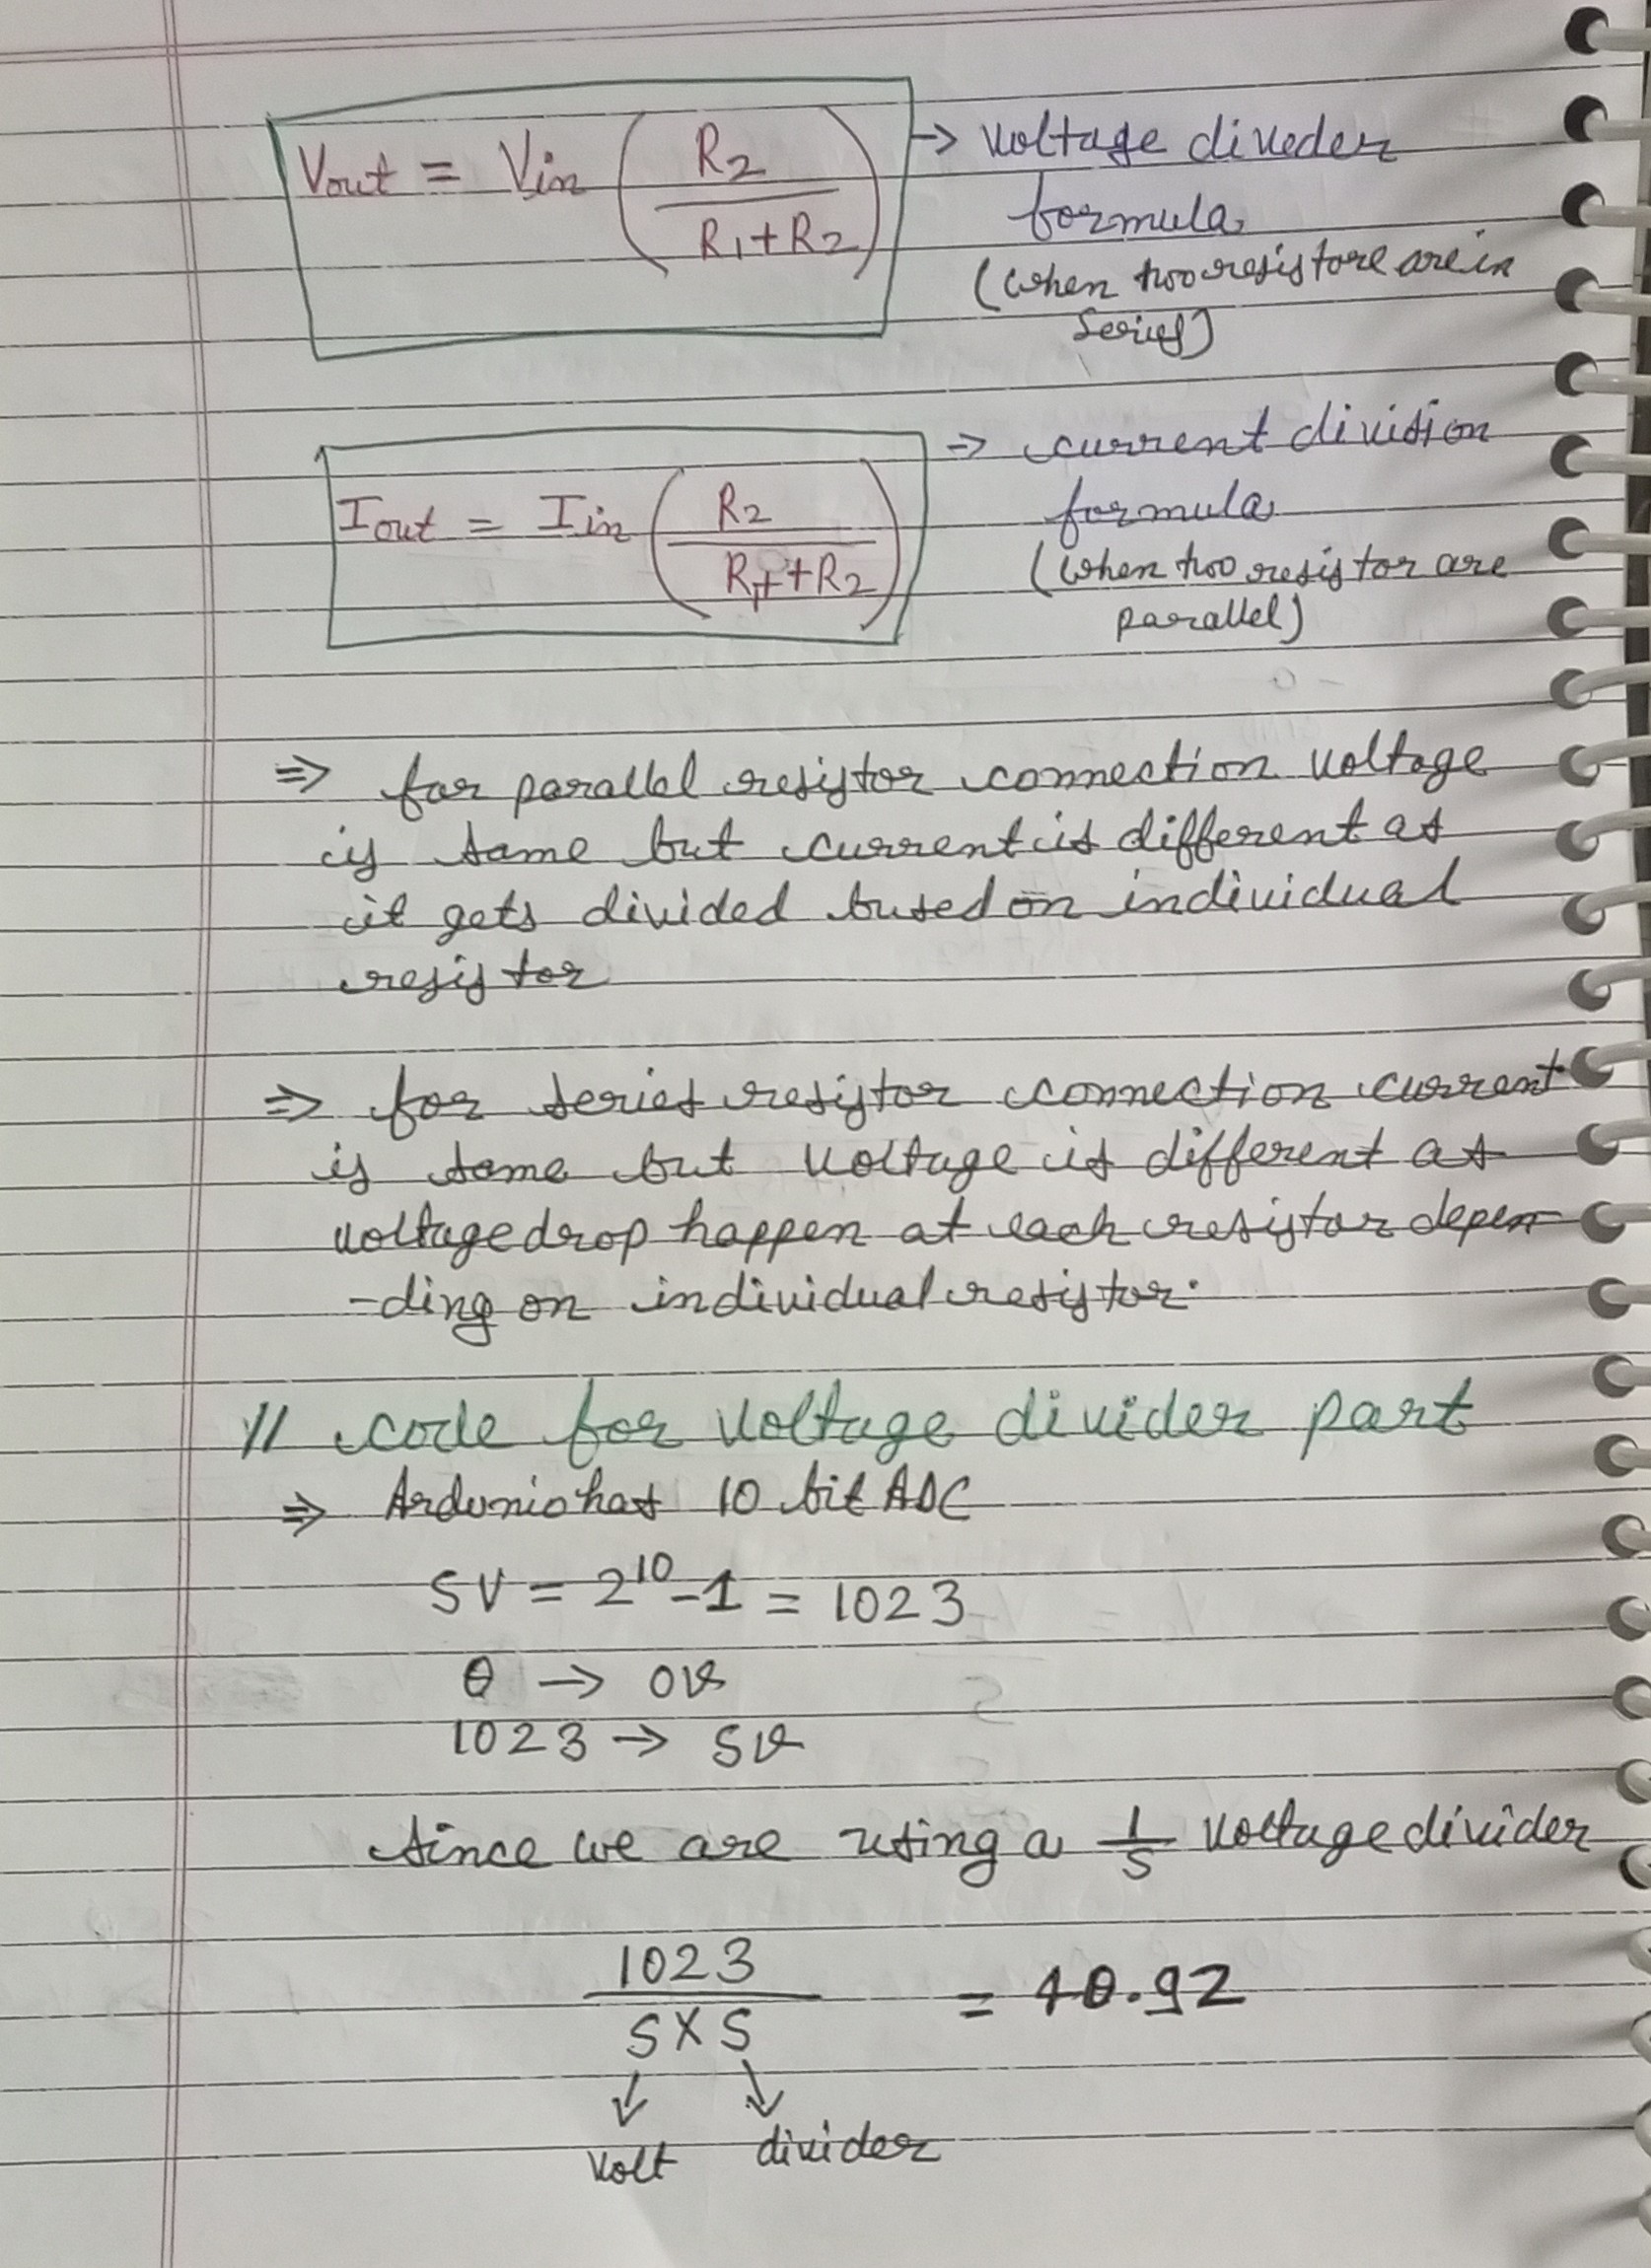 Vout = Vin ( R2 / R1+R2 ) → voltage diveder
formula
(when two resistore are in
series)
Iout = Iin ( R2 / R1+R2 ) → current division
formula
(when two resistor are
parallel)
⇒ for parallel resistor connection voltage
is same but current is different as
it gets divided bused on individual
resistor
⇒ for series resistor connection current
is same but voltage is different as
voltage drop happen at each resistor depen
-ding on individual resistor.
// code for voltage divider part
⇒ Ardunio has 10 bit ADC
5V = 2^10 - 1 = 1023
0 → 0v
1023 → 5v
since we are using a 1/5 voltage divider
1023 / 5 × 5 = 40.92
↓ ↓
volt divider